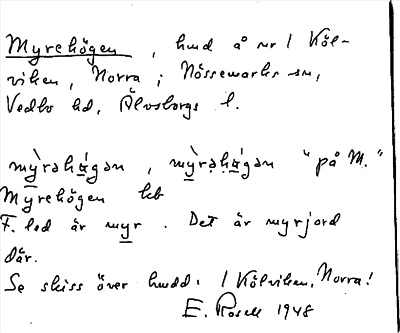 Myrehögen, hmd å nr 1 Köl-
viken, Norra, i Nössemarks sn,
Vedbo hd, Älvsborgs l.
mỳrəhǻ̱gən, mỳ̱rə̣ḥǻ̱gən "på M."
Myrehögen kb
F. led är my̱r. Det är myrjord
där.
Se skiss över hmdd. 1 Kölviken, Norra!
E. Rosell 1948